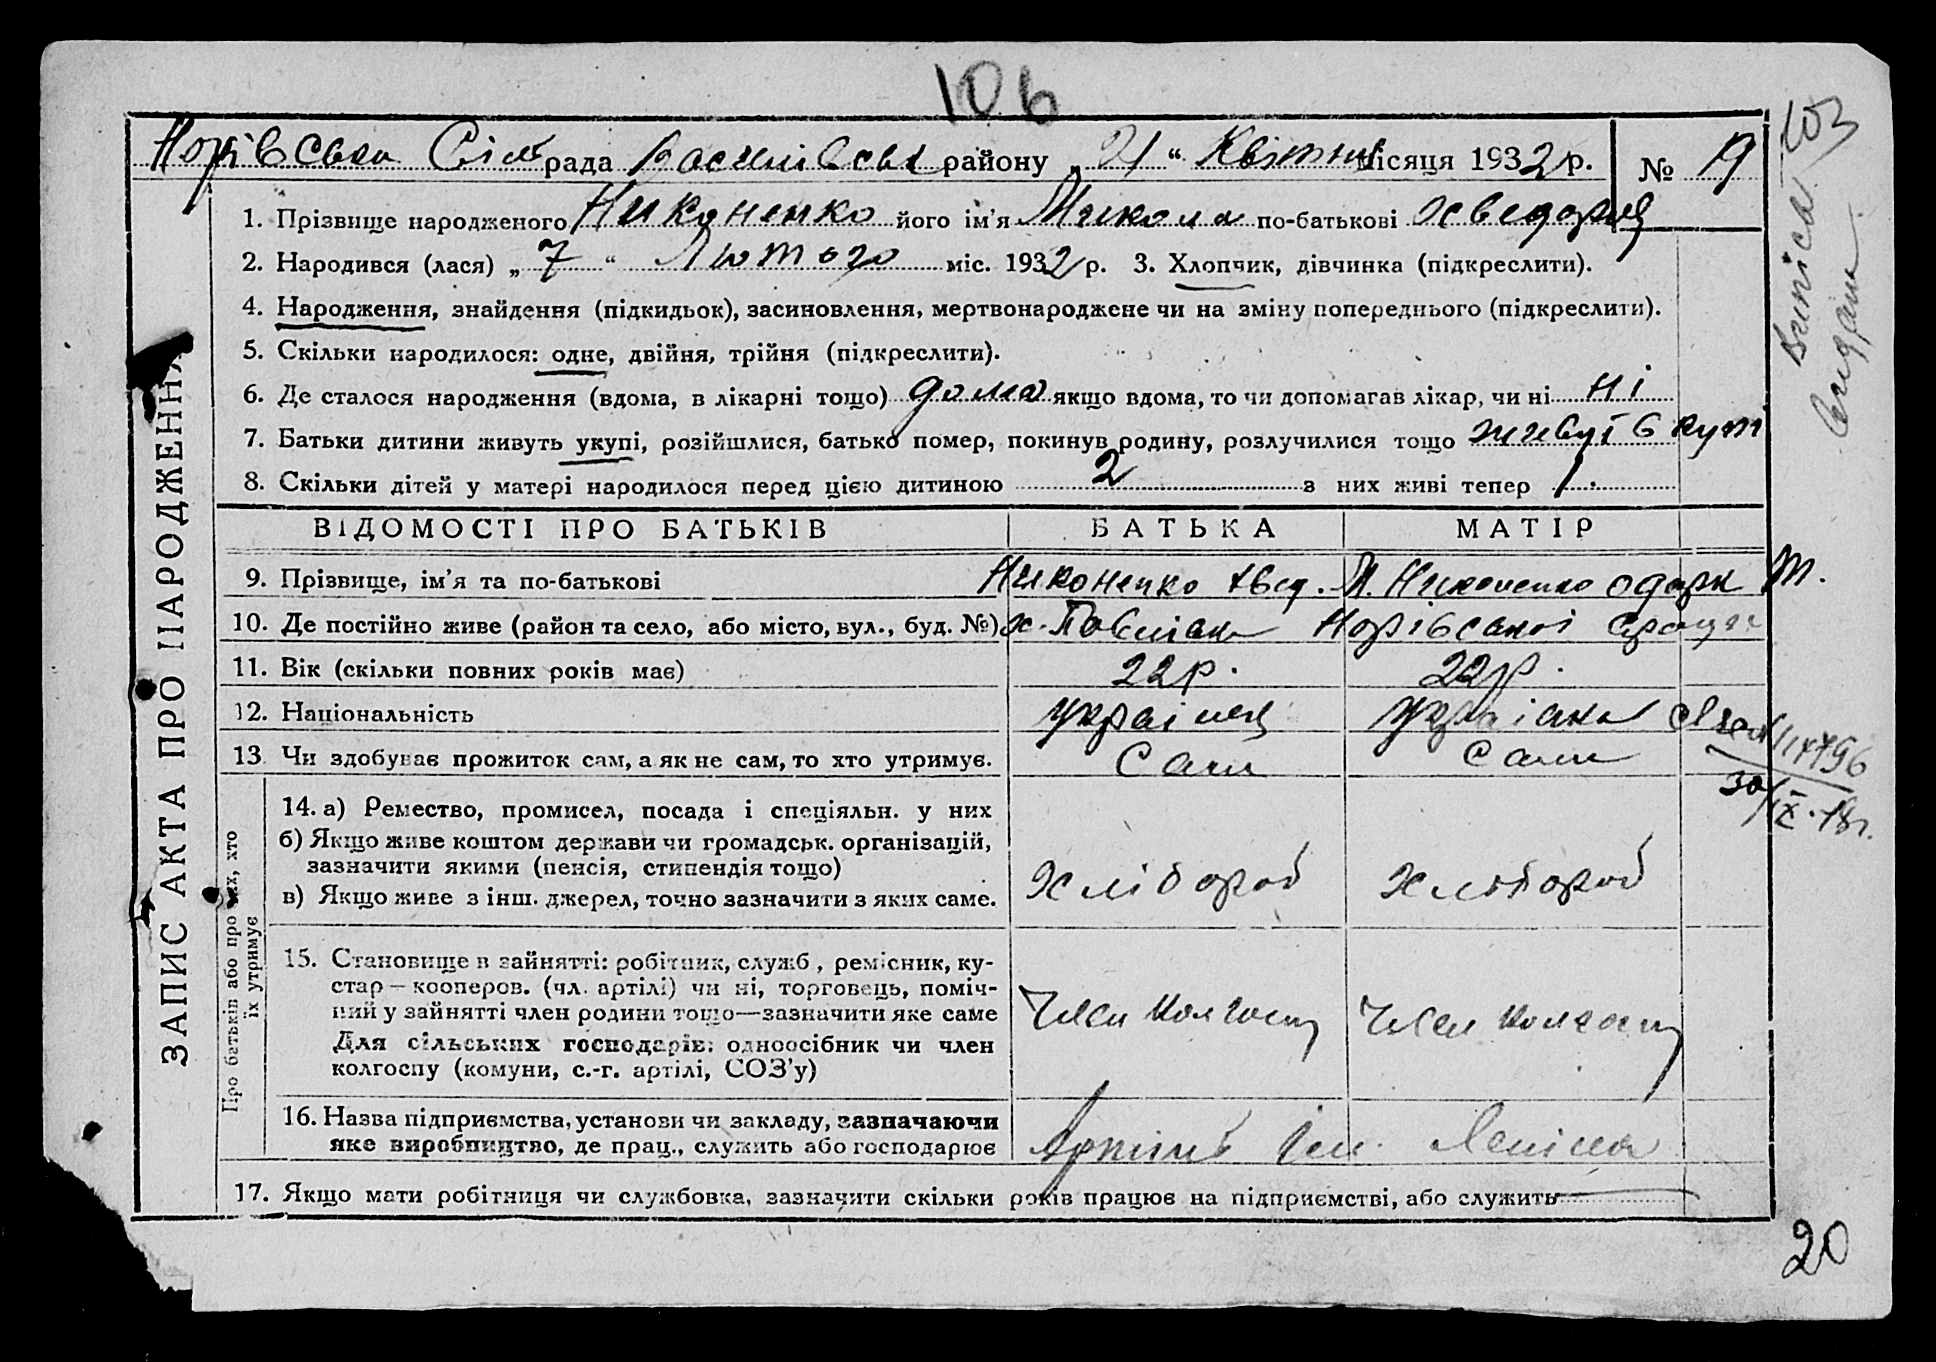 106
Сіль рада району „21“ Квітня місяця 1932 р. № 19
1. Прізвище народженого Никоненко його ім'я Микола по-батькові Хведорец
2. Народився (лася) „7“ Лютого міс. 1932 р. 3. Хлопчик, дівчинка (підкреслити).
4. Народження, знайдення (підкидьок), засиновлення, мертвонароджене чи на зміну попереднього (підкреслити).
5. Скільки народилося: одне, двійня, трійня (підкреслити).
6. Де сталося народження (вдома, в лікарні тощо) дома якщо вдома, то чи допомагав лікар, чи ні ні
7. Батьки дитини живуть укупі, розійшлися, батько помер, покинув родину, розлучилися тощо живуть в купі
8. Скільки дітей у матері народилося перед цією дитиною 2 з них живі тепер 1.
ВІДОМОСТІ ПРО БАТЬКІВ БАТЬКА МАТІР
9. Прізвище, ім'я та по-батькові Никоненко Хвед. М. Никоненко Одарк Т.
10. Де постійно живе (район та село, або місто, вул., буд. №) х. Павлівка
11. Вік (скільки повних років має) 22 р. 22 р.
12. Національність українец українка
13. Чи здобуває прожиток сам, а як не сам, то хто утримує. Сами Сами
14. а) Ремество, промисел, посада і спеціяльн. у них
б) Якщо живе коштом держави чи громадськ. організацій,
зазначити якими (пенсія, стипендія тощо)
в) Якщо живе з інш. джерел, точно зазначити з яких саме.
Хлібороб Хлібороб
15. Становище в зайнятті: робітник, служб., ремісник, ку-
стар — кооперов. (чл. артілі) чи ні, торговець, поміч-
ний у зайнятті член родини тощо—зазначити яке саме
Для сільських господарів: одноосібник чи член
колгоспу (комуни, с.-г. артілі, СОЗ'у)
Член колгоспу Член колгоспу
16. Назва підприємства, установи чи закладу, зазначаючи
яке виробництво, де прац., служить або господарює
Артіль ім. Леніна
17. Якщо мати робітниця чи службовка, зазначити скільки років працює на підприємстві, або служить —
ЗАПИС АКТА ПРО НАРОДЖЕННЯ
Про батьків або про тих, хто
їх утримує
103
20